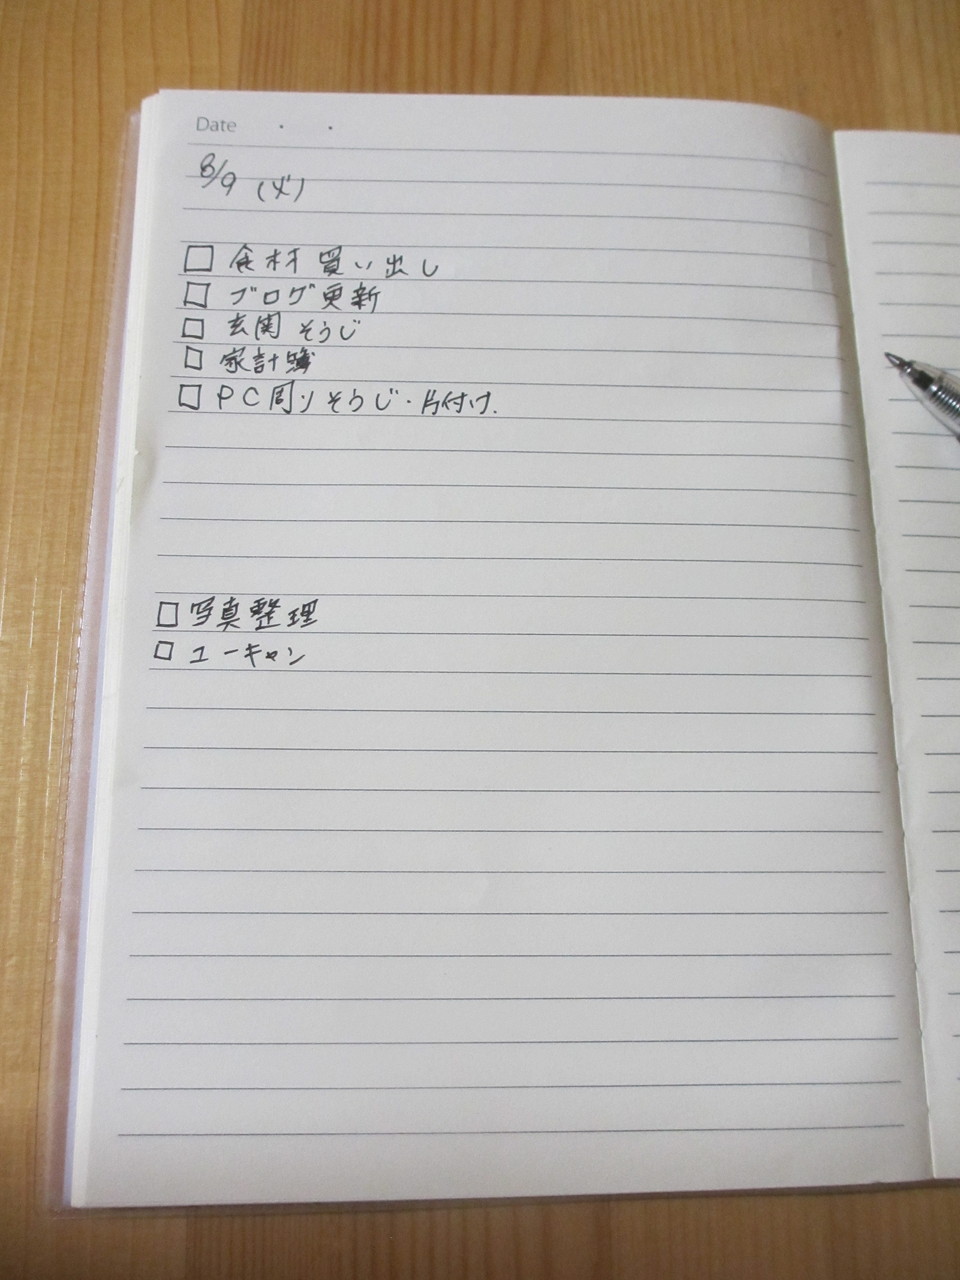 Date ・ ・
8/9 (火)
□ 食材 買い出し
□ ブログ更新
□ 玄関 そうじ
□ 家計簿
□ PC周りそうじ・片付け.
□ 写真整理
□ ユーキャン